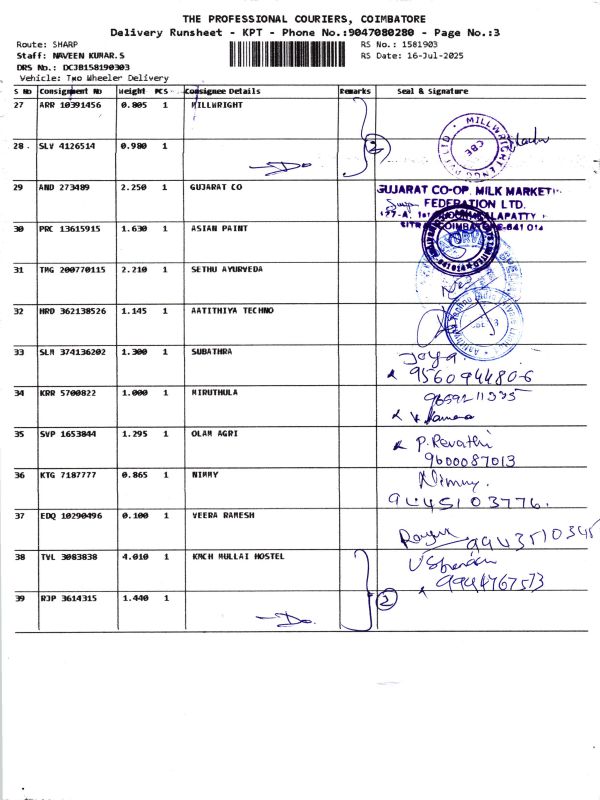 THE PROFESSIONAL COURIERS, COIMBATORE
Delivery Runsheet - KPT - Phone No.:9047080280 - Page No.:3
Route: SHARP
RS No.: 1581903
Staff: NAVEEN KUMAR.S
RS Date: 16-Jul-2025
DRS No.: DCJB158190303
Vehicle: Two Wheeler Delivery
S No Consignment No Weight PCS Consignee Details Remarks Seal & Signature
27 ARR 10391456 0.805 1 MILLWRIGHT
28 SLV 4126514 0.980 1 —Do— 2
29 AND 273489 2.250 1 GUJARAT CO
GUJARAT CO-OP. MILK MARKETI
FEDERATION LTD.
30 PRC 13615915 1.630 1 ASIAN PAINT
COIMBATORE-641 014
31 TMG 200770115 2.210 1 SETHU AYURVEDA
32 HRD 362138526 1.145 1 AATITHIYA TECHNO
33 SLM 374136202 1.300 1 SUBATHRA
Jaya
9560944806
34 KRR 5700822 1.000 1 MIRUTHULA
35 SVP 1653844 1.295 1 OLAM AGRI
P. Revathi
9600087013
36 KTG 7187777 0.865 1 NIMMY
Nimmy.
9445103776.
37 EDQ 10290496 0.100 1 VEERA RAMESH
9943510345
38 TVL 3083838 4.010 1 KMCH MULLAI HOSTEL
9944767573
39 RJP 3614315 1.440 1 —Do— 2